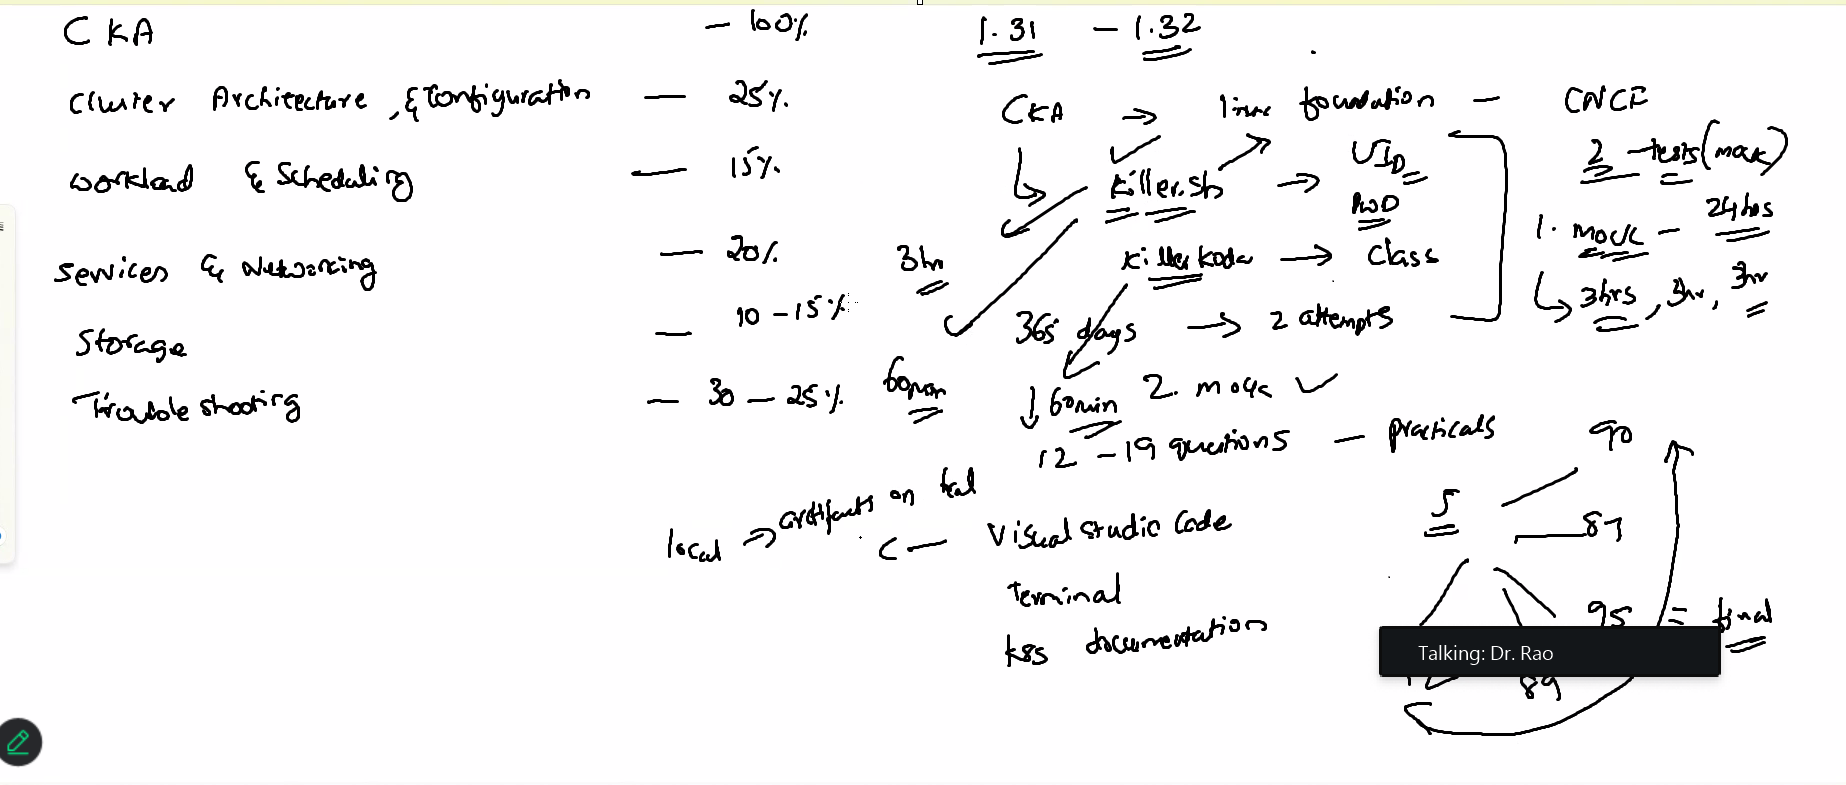 CKA — 100%
Cluster Architecture, & Configuration — 25%
Workload & Scheduling — 15%
Services & Networking — 20%
Storage — 10 - 15%
Trouble shooting — 30 - 25%
1.31 - 1.32
CKA → foundation - CNCF
Killer.sh → UID
PWD
Killer koda → Class
365 days → 2 attempts
3hr
60min
↓ 60min
2. mock ✓
12 - 19 questions - practicals
2 - tests (mock)
1. mock - 24hrs
3hrs, 3hr, 3hr
local → artifacts on
Visual Studio Code
Terminal
k8s documentation
5
90
87
95 = final
89
Talking: Dr. Rao